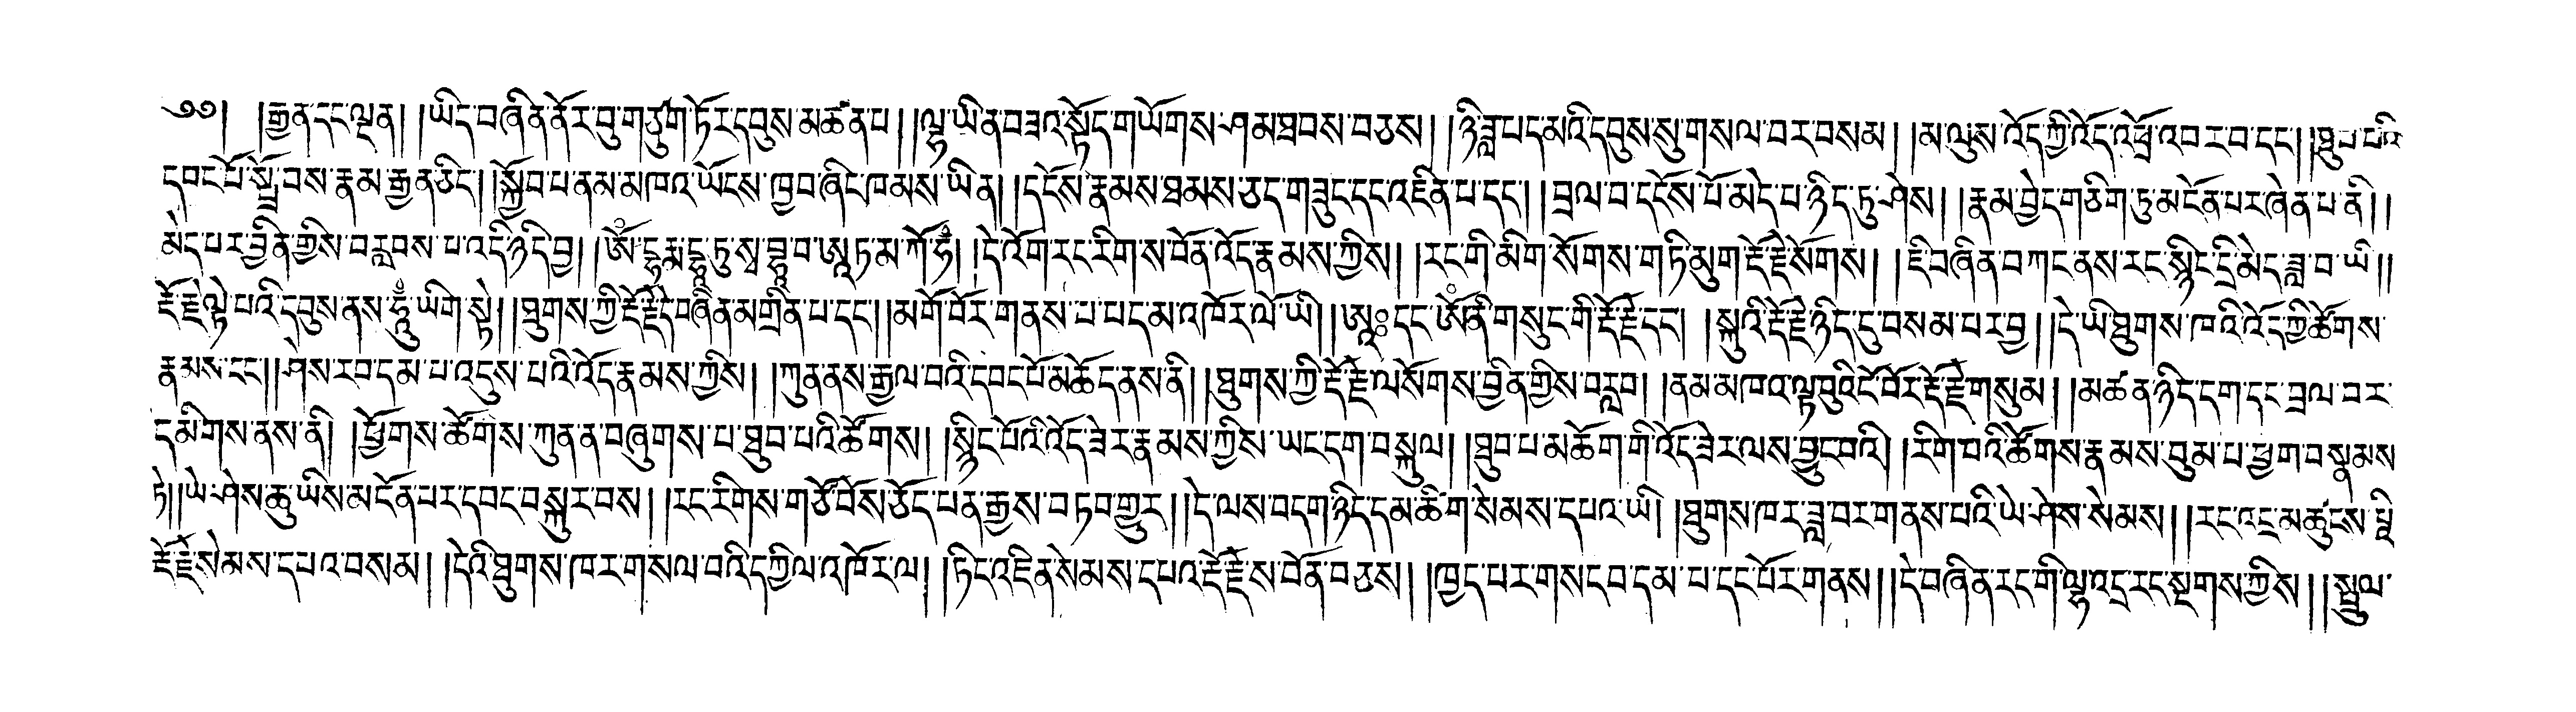 ༄༅། །རྒྱན་དང་ལྡན། །ཡིད་བཞིན་ནོར་བུ་གཙུག་ཏོར་དབུས་མཚན་པ། །ལྷ་ཡིན་བཟའ་སྟོད་གཡོགས་ཤམ་ཐབས་བཅས། །ཉི་ཟླ་པདམའི་དབུས་སུ་གསལ་བར་བསམ། །མ་ལུས་འོད་ཀྱི་འོད་འཕྲོ་འབར་བ་དང། །ཐུབ་པའི་
དབང་པོ་སྤྲོ་བས་རྣམ་རྒྱན་ཅིང། །སྐྱོབ་པ་ནམ་མཁའ་ཡོངས་ཁྱབ་ཞིང་ཁམས་ཡིན། །དངོས་རྣམས་ཐམས་ཅད་གཟུང་དང་འཛིན་པ་དང། །བྲལ་བ་དངོས་པོ་མེད་པ་ཉིད་ཏུ་ཤེས། །རྣམ་བྱེད་གཅིག་ཏུ་མངོན་པར་ཞེན་པ་ནི། །
མེད་པར་བྱིན་གྱིས་བརླབས་པ་འདི་ཉིད་བྱ། །ཨོཾ་དྷརྨ་དྷཱ་ཏུ་སྭ་བྷཱ་བ་ཨཱཏམ་ཀོ་ཧཾ། །དེ་འོག་རང་རིག་ས་བོན་འོད་རྣམས་ཀྱིས། །རང་གི་མིག་སོགས་གཏི་མུག་རྡོ་རྗེ་སོགས། །ཇི་བཞིན་བཀང་ནས་རང་སྙིང་དྲི་མེད་ཟླ་བ་ཡི །།
རྡོ་རྗེ་ལྟེ་བའི་དབུས་ནས་ཧཱུཾ་ཡིག་སྟེ། །ཐུགས་ཀྱི་རྡོ་རྗེ་དེ་བཞིན་མགྲིན་པ་དང། །མགོ་བོར་གནས་པ་པདམ་འཁོར་ལོ་ཡི། །ཨཱཿ་དང་ཨོཾ་ནི་གསུང་གི་རྡོ་རྗེ་དང། །སྐུའི་རྡོ་རྗེ་ཉིད་དུ་བསམ་པར་བྱ། །དེ་ཡི་ཐུགས་ཁའི་འོད་ཀྱི་ཚོགས་
རྣམས་དང། །ཤེས་རབ་དམ་པ་འདུས་པའི་འོད་རྣམས་ཀྱིས། །ཀུན་ནས་རྒྱལ་བའི་དབང་པོ་མཆོད་ནས་ནི། །ཐུགས་ཀྱི་རྡོ་རྗེ་ལ་སོགས་བྱིན་གྱིས་བརླབ། །ནམ་མཁའ་ལྟ་བུའི་ངོ་བོར་རྡོ་རྗེ་གསུམ། །མཚན་ཉིད་དག་དང་བྲལ་བར་
དམིགས་ནས་ནི། །ཕྱོགས་ཚོགས་ཀུན་ན་བཞུགས་པ་ཐུབ་པའི་ཚོགས། །སྙིང་པོའི་འོད་ཟེར་རྣམས་ཀྱིས་ཡང་དག་བསྐུལ། །ཐུབ་པ་མཆོག་གི་འོད་ཟེར་ལས་བྱུང་བའི། །རིག་བའི་ཚོགས་རྣམས་བུམ་པ་ཕྱག་བསྣམས་
ཏེ། །ཡེ་ཤེས་ཆུ་ཡིས་མངོན་པར་དབང་བསྐུར་བས། །རང་རིགས་གཙོ་བོས་ཅོད་པན་རྒྱས་བཏབ་གྱུར། །དེ་ལས་བདག་ཉིད་དམ་ཚིག་སེམས་དཔའ་ཡི། །ཐུགས་ཁར་ཟླ་བར་གནས་པའི་ཡེ་ཤེས་སེམས། །རང་འདྲ་མཚུངས་པའི་
རྡོ་རྗེ་སེམས་དཔའ་བསམ། །དེའི་ཐུགས་ཁར་གསལ་བའི་དཀྱིལ་འཁོར་ལ། །ཏིང་འཛིན་སེམས་དཔའ་རྡོ་རྗེ་ས་བོན་བཅས། །ཁྱད་པར་གསང་བ་དམ་པ་དང་པོར་གནས། །དེ་བཞིན་རང་གི་ལྷ་འདྲ་རང་སྔགས་ཀྱིས། །སྤྲུལ་